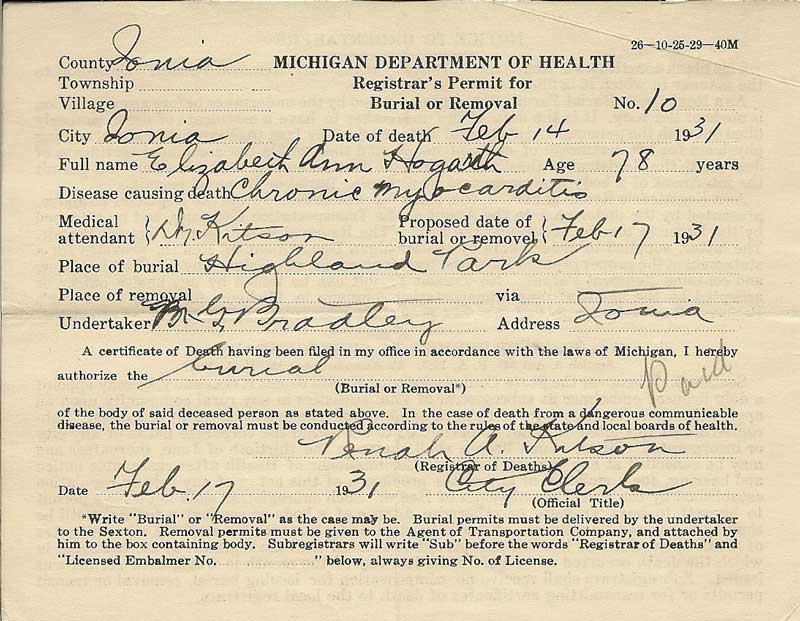 26—10-25-29—40M
County Ionia MICHIGAN DEPARTMENT OF HEALTH
Township Registrar's Permit for
Village Burial or Removal No. 10
City Ionia Date of death Feb 14 1931
Full name Elizabeth Ann Hogarth Age 78 years
Disease causing death Chronic Myocarditis
Medical attendant Dr. Kitson Proposed date of burial or removel Feb 17 1931
Place of burial Highland Park
Place of removal via
Undertaker Bradley Address Ionia
A certificate of Death having been filed in my office in accordance with the laws of Michigan, I hereby
authorize the burial
(Burial or Removal*)
Paid
of the body of said deceased person as stated above. In the case of death from a dangerous communicable
disease, the burial or removal must be conducted according to the rules of the state and local boards of health.
A. Kitson
(Registrar of Deaths)
Date Feb. 17 1931 City Clerk
(Official Title)
*Write "Burial" or "Removal" as the case may be. Burial permits must be delivered by the undertaker
to the Sexton. Removal permits must be given to the Agent of Transportation Company, and attached by
him to the box containing body. Subregistrars will write "Sub" before the words "Registrar of Deaths" and
"Licensed Embalmer No. " below, always giving No. of License.